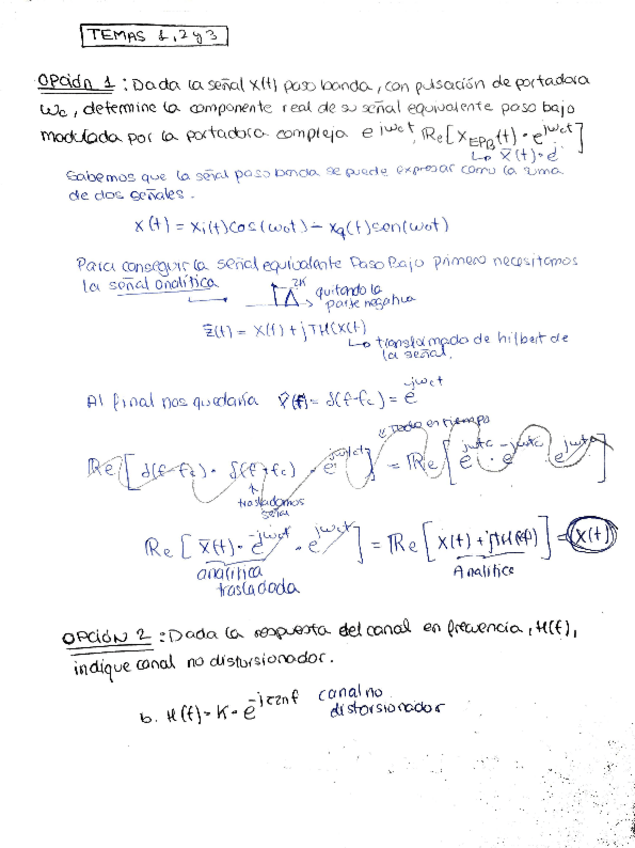 TEMAS 1, 2 y 3
Opción 1: Dada la señal x(t) paso banda, con pulsación de portadora
ωc, determine la componente real de su señal equivalente paso bajo
modulada por la portadora compleja e^jωct, Re[x_EPB(t)·e^jωct]
Sabemos que la señal paso banda se puede expresar como la suma
de dos señales.
x(t) = xi(t)cos(ωot) - xq(t)sen(ωot)
Para conseguir la señal equivalente Paso Bajo primero necesitamos
la señal analítica
2K
quitando la
parte negativa
z(t) = x(t) + jTH(x(t)
transformada de hilbert de
la señal.
Al final nos quedaría
= δ(f-fc) = e^-jωct
Todo en tiempo
Re[
trasladamos
señal
Re[x(t)·e^-jωct·e^jωct] = Re[x(t) + jTH(] = x(t)
analítica
trasladada
Analítica
OPCIÓN 2: Dada la respuesta del canal en frecuencia, H(f),
indique canal no distorsionador.
b. H(f) = K·e^-jτ2πf canal no
distorsionador